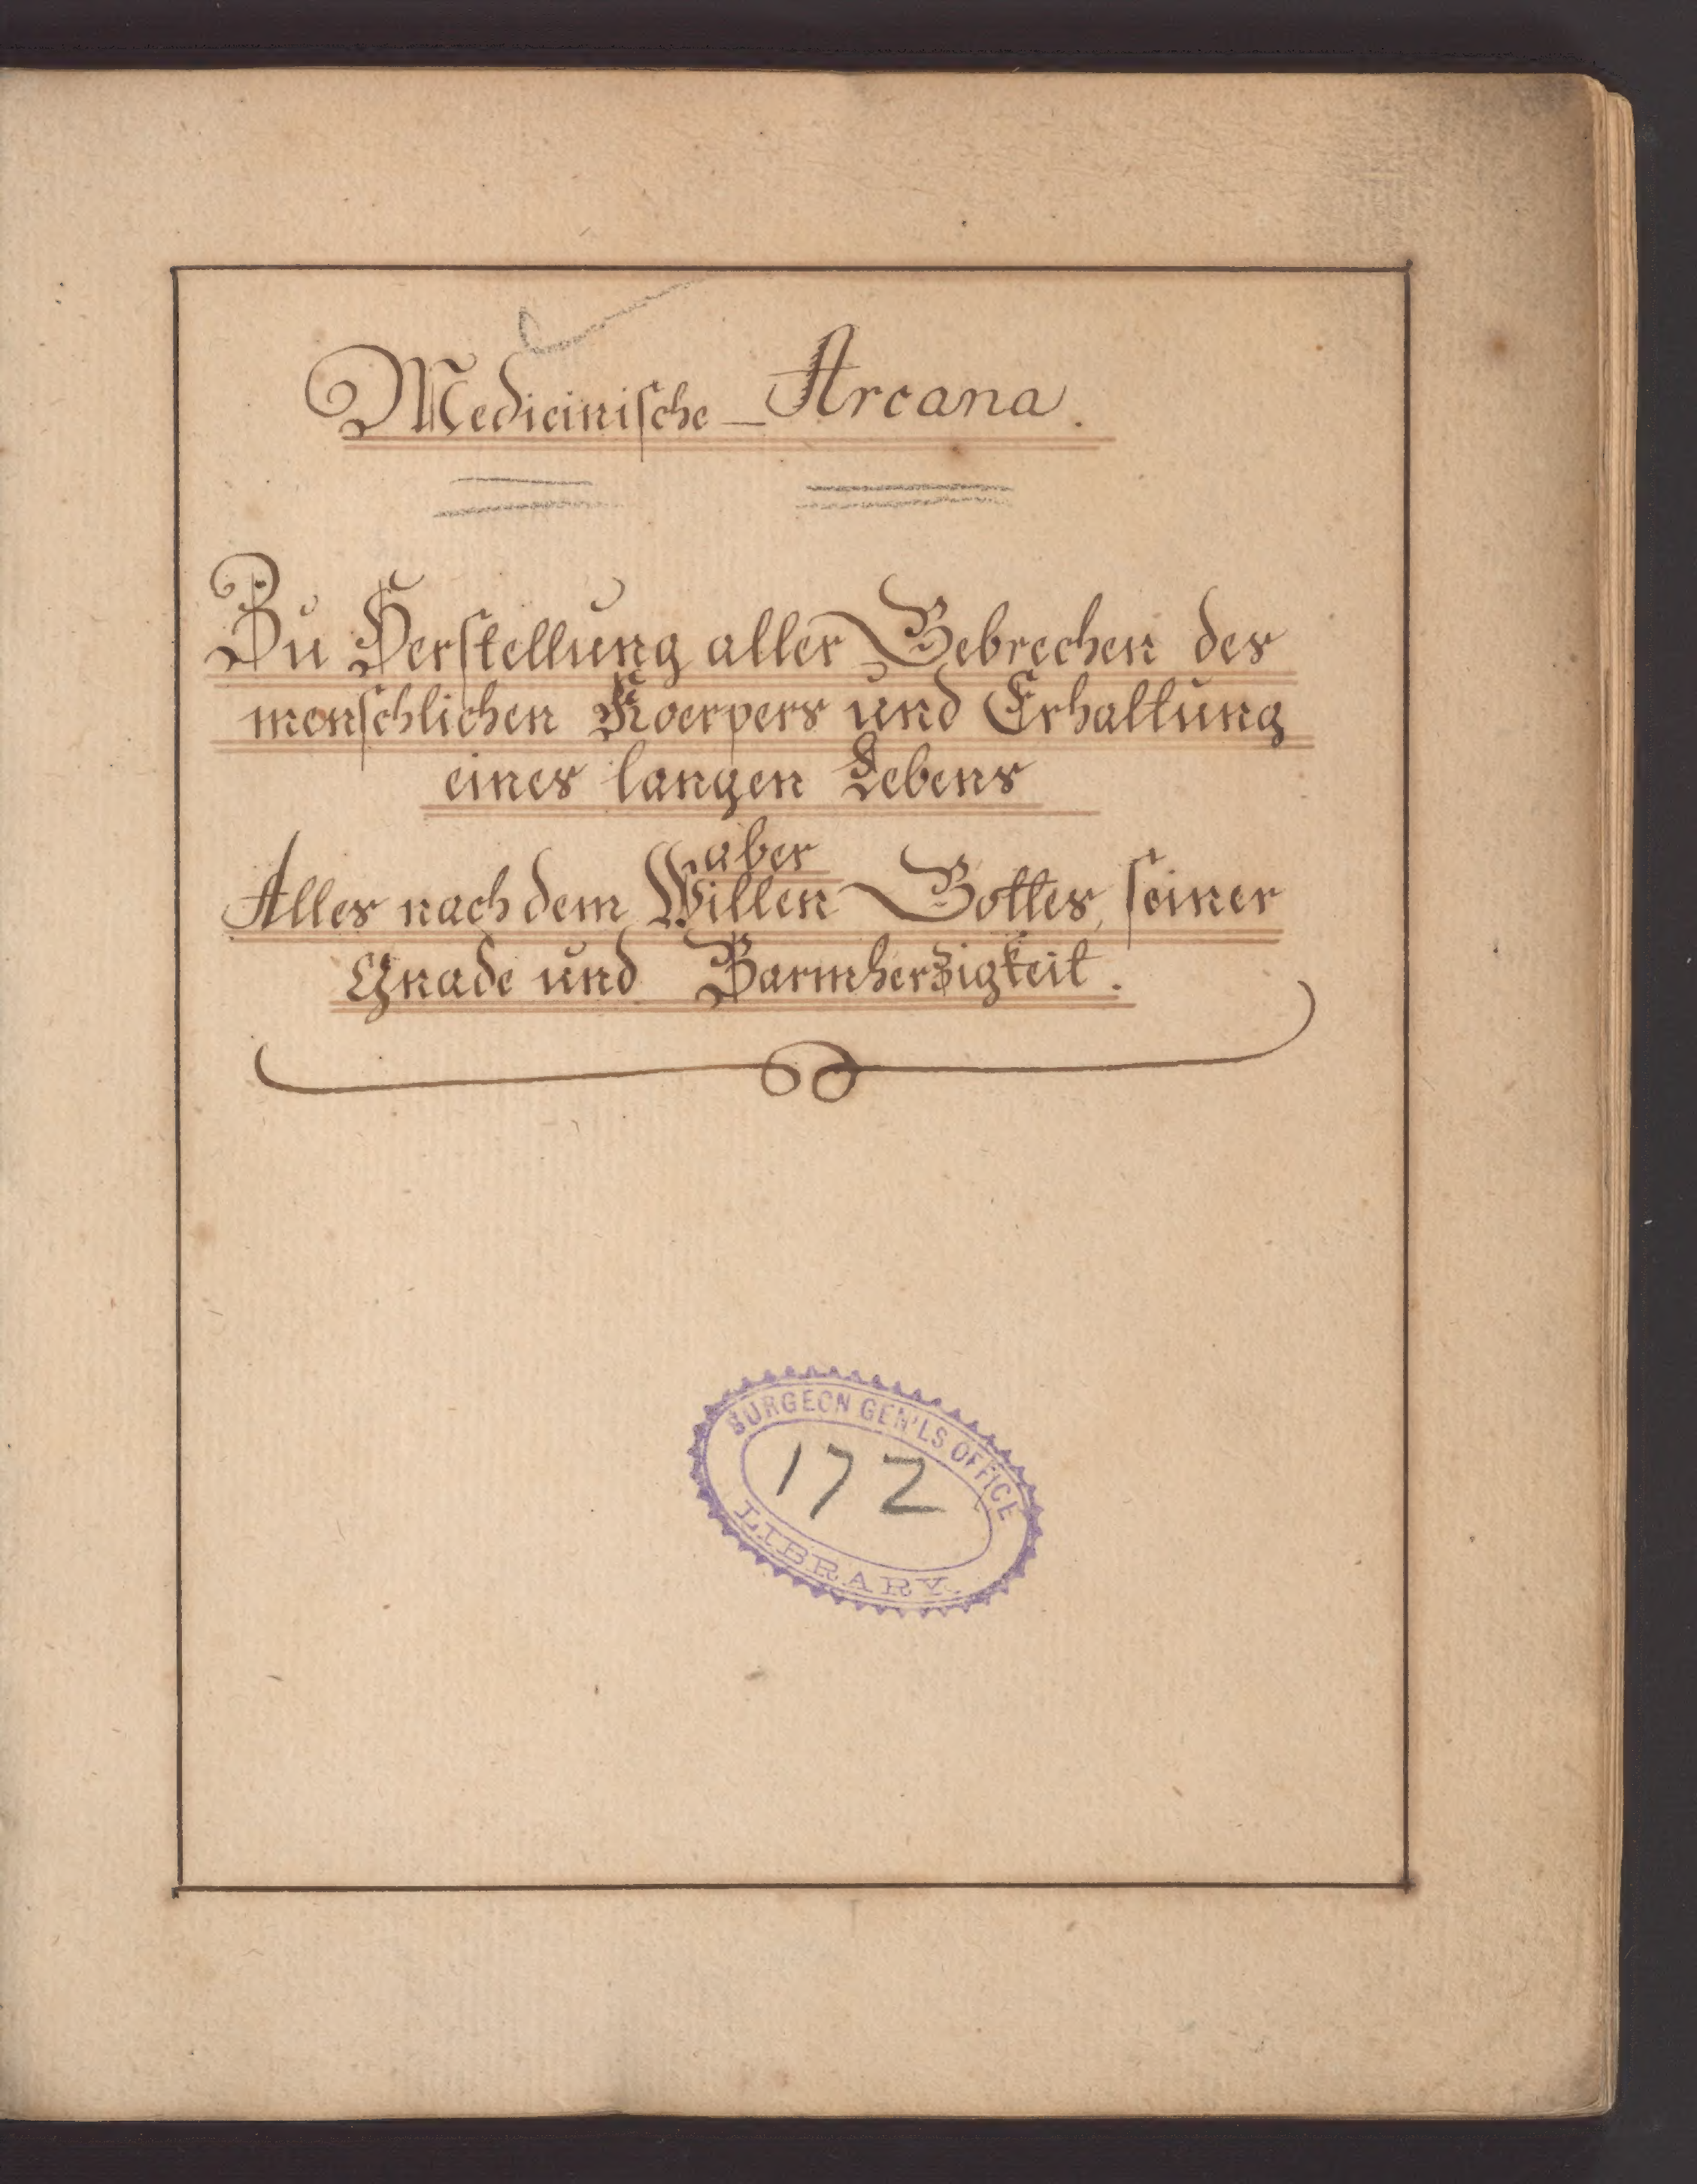 Medicinische Arcana.
Zu Herstellung aller Gebrechen des
menschlichen Koerpers und Erhaltung
eines langen Lebens
aber
Alles nach dem Willen Gottes, seiner
Gnade und Barmherzigkeit.
SURGEON GEN'LS OFFICE
172
LIBRARY.